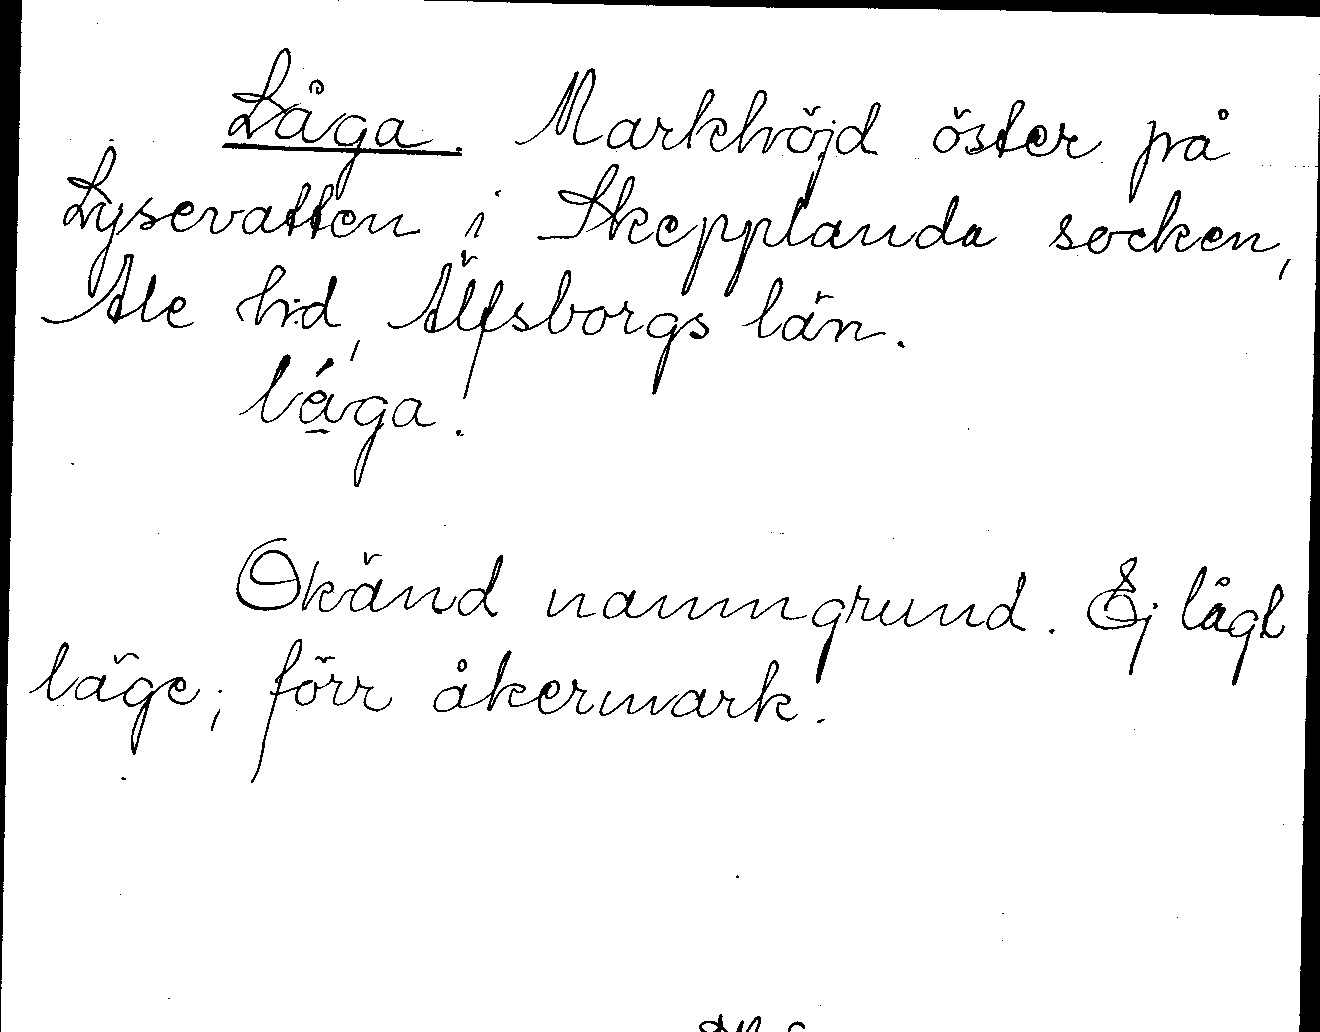 Låga. Markhöjd öster på
Lysevatten i Skepplanda socken,
Ale hd, Älfsborgs län.
lá̱ga.
Okänd namngrund. Ej lågt
läge; förr åkermark.